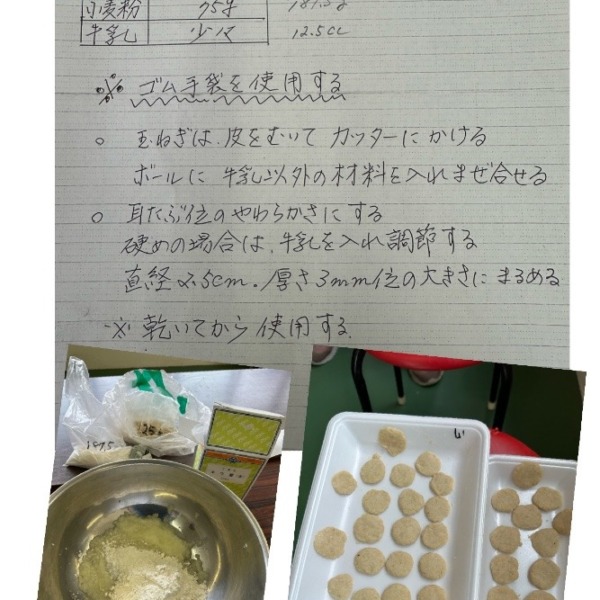 小麦粉 75g 187.5g
牛乳 少々 12.5cc
※ ゴム手袋を使用する
○ 玉ねぎは、皮をむいて カッターにかける
ボールに 牛乳以外の材料を入れまぜ合せる
○ 耳たぶ位のやわらかさにする
硬めの場合は、牛乳を入れ調節する
直径2.5cm.厚さ3mm位の大きさに まるめる
※ 乾いてから 使用する.